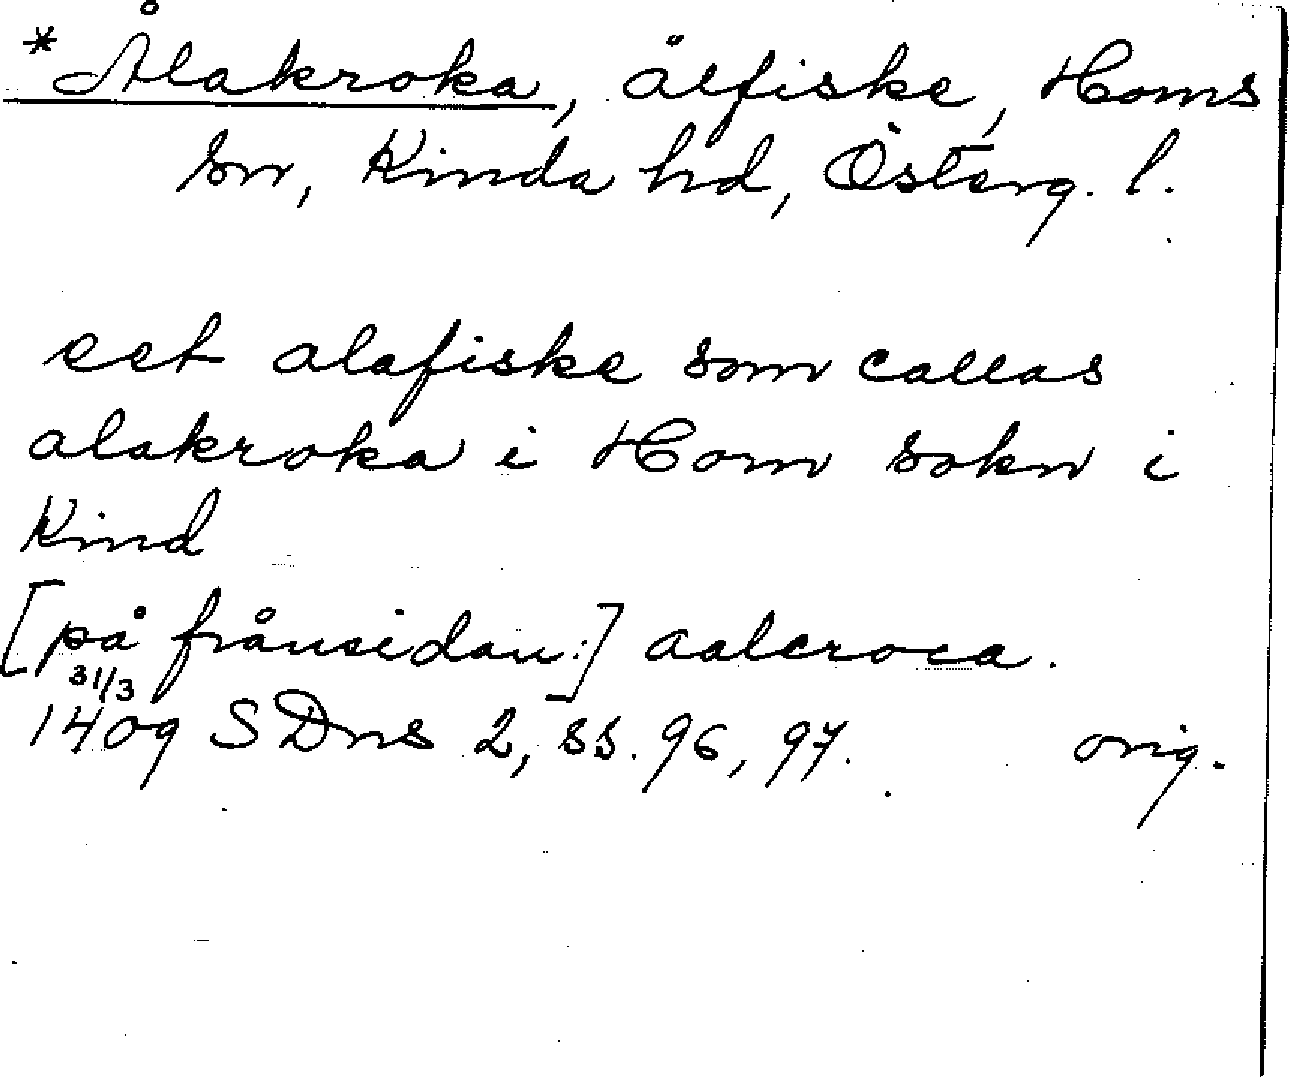 *Ålakroka, ålfiske, Homs
sn, Kinda hd, Österg. l.
eet alafiske som callas
alakroka i Hom sokn i
Kind
[på frånsidan:] aalcroca.
31/3
1409 SDns 2, ss. 96, 97. orig.